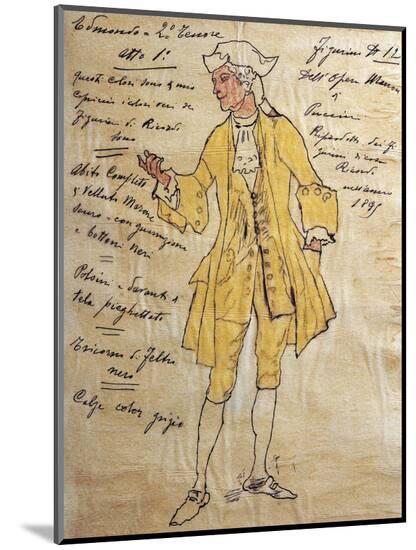 Edmondo = 2º Tenore
Atto 1º
Questi colori sono a mio
capriccio i colori veri dei
Figurini di Ricordi
sono
Abito Completo
di Velluto Marrone
scuro = con guarnizione
e bottoni neri
Polsini e davanti di
tela pieghettato
Tricorno di Feltro
nero
Calze color grigio
Figurino Nº 12
Dell'Opera Manon
di
Puccini
Riprodotti dai fi
gurini di casa
Ricordi
nell'anno
1895